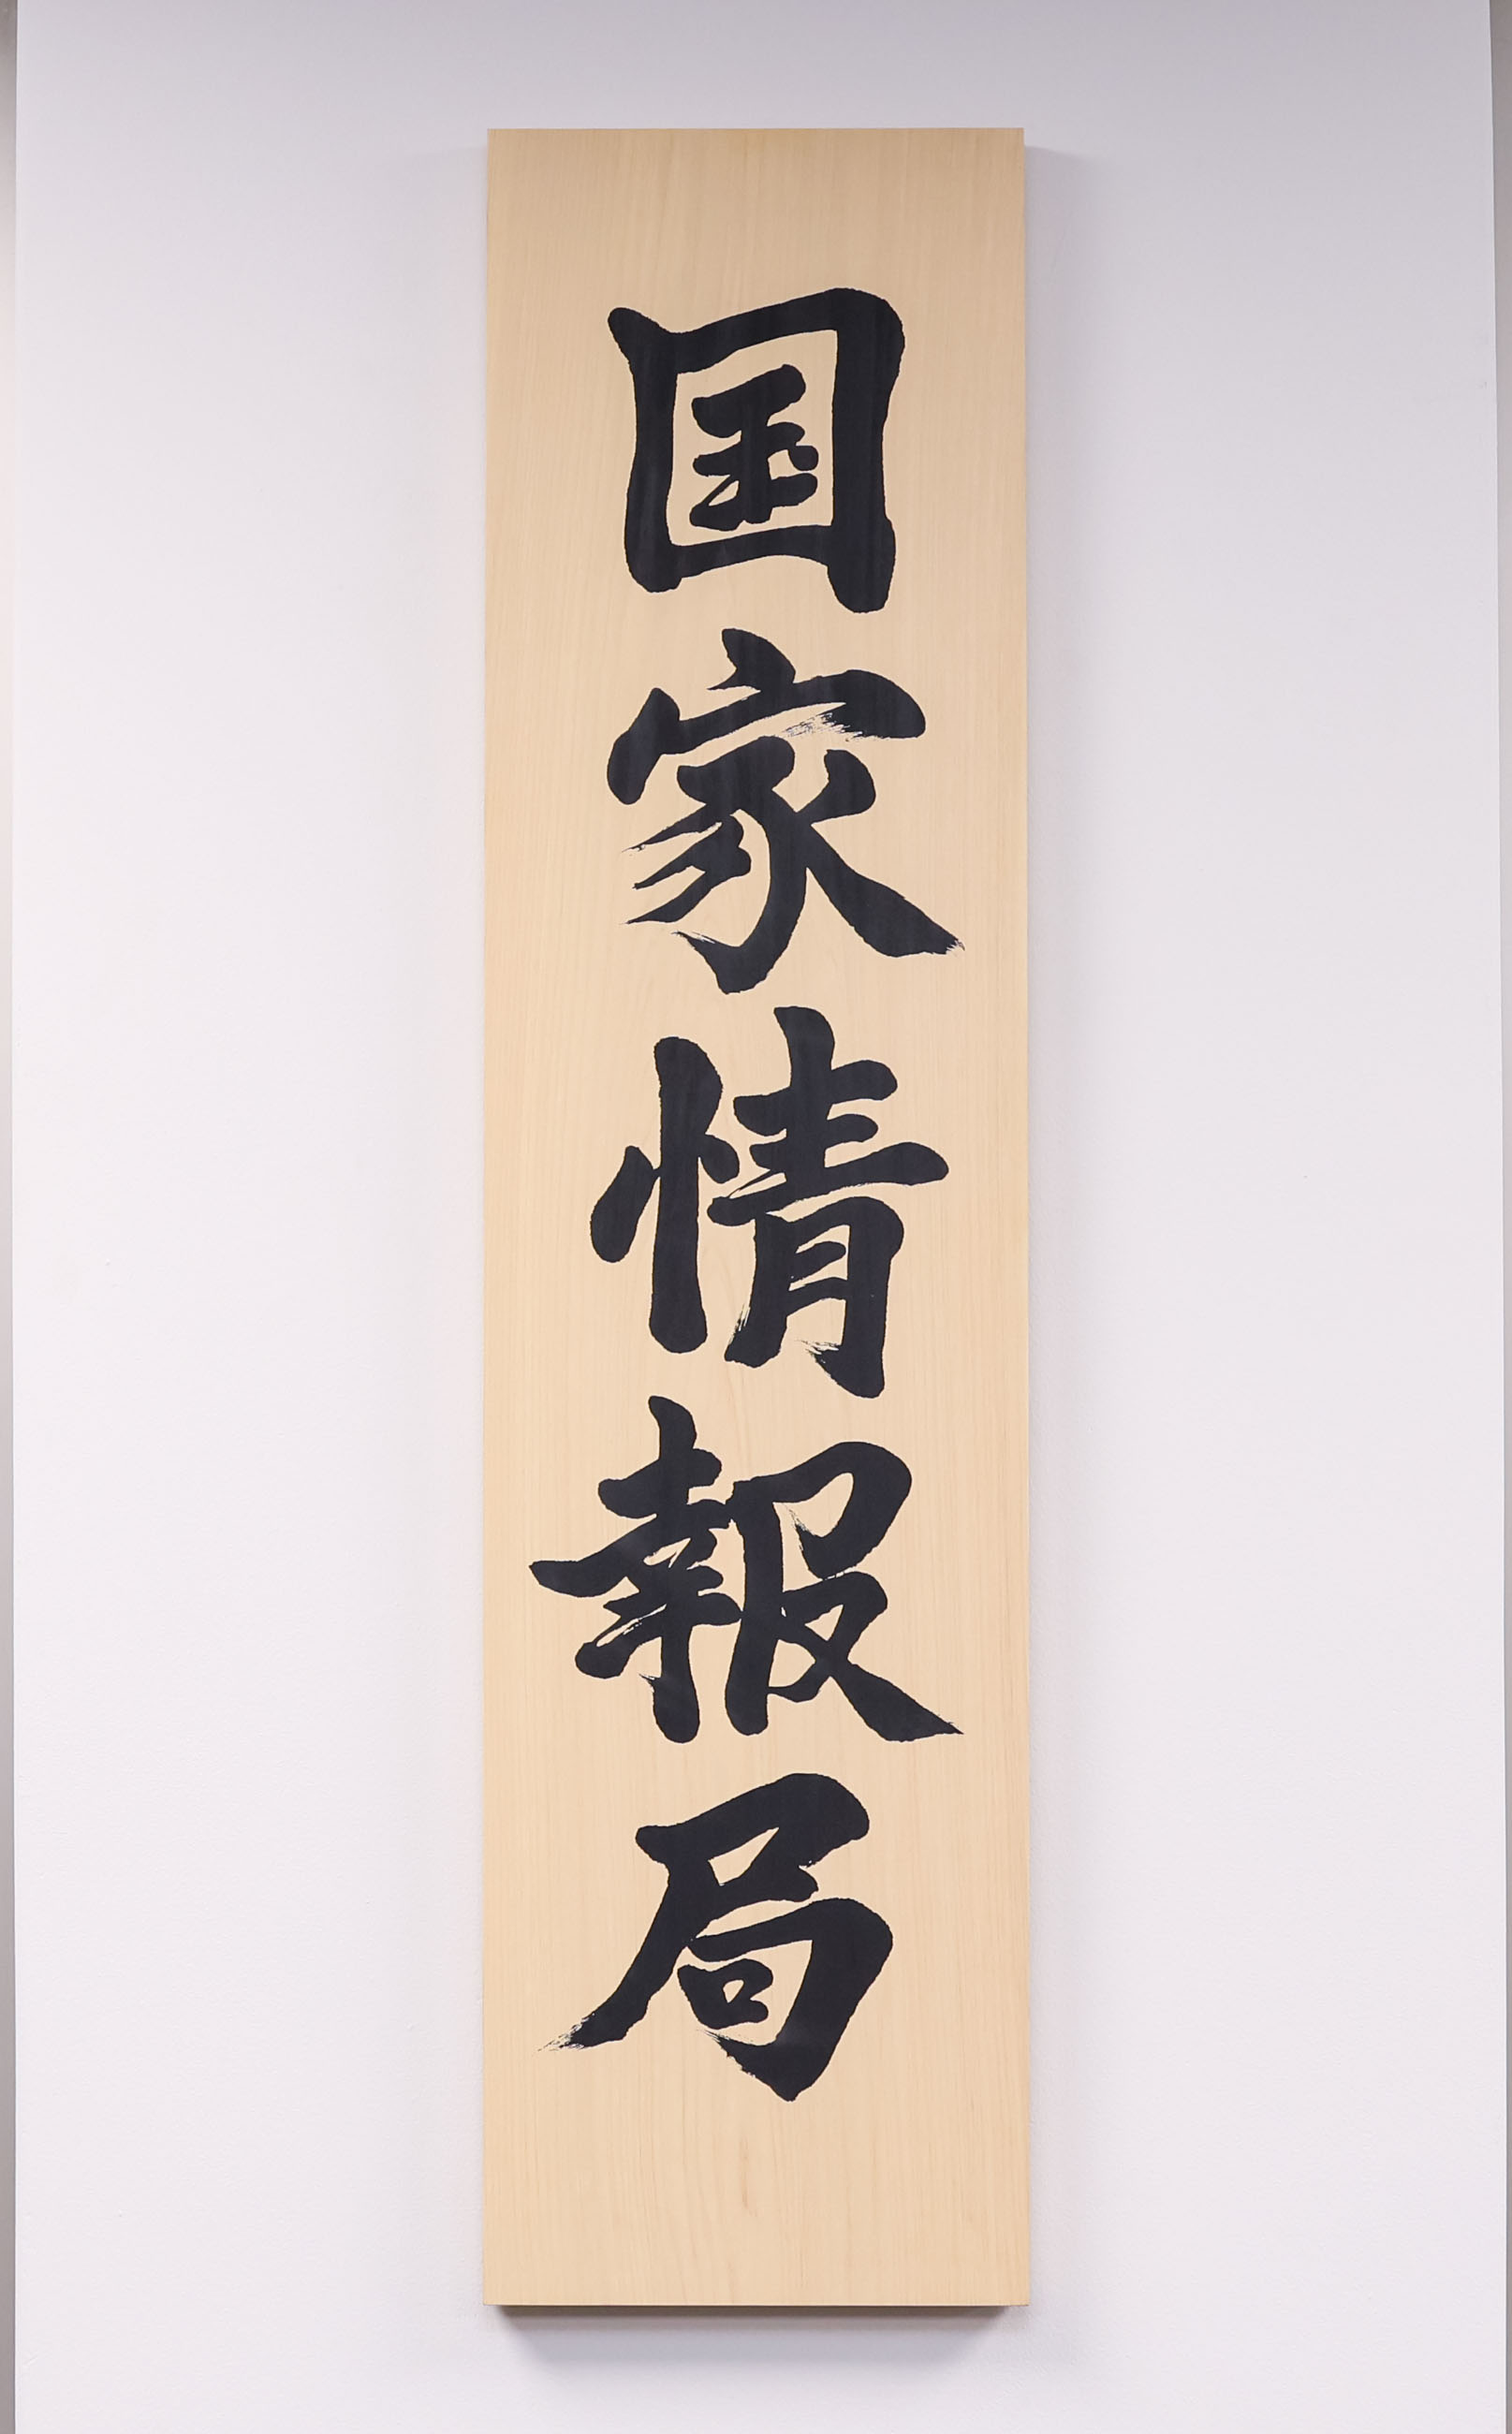 国家情報局